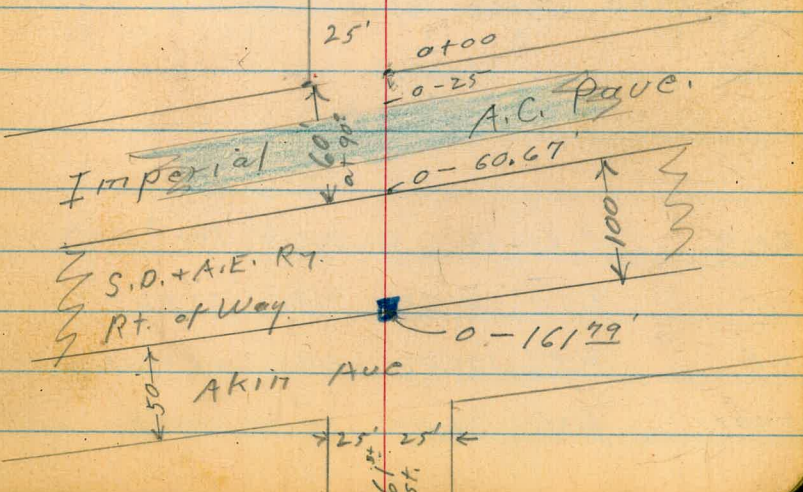 25'
0+00
0-25
A.C. Pave.
Imperial
60'
at 90°
0-60.67'
100
S.D. + A.E. Ry.
Rt. of Way
0-161 79'
Akin Ave
50'
25' 25'
61st
St.